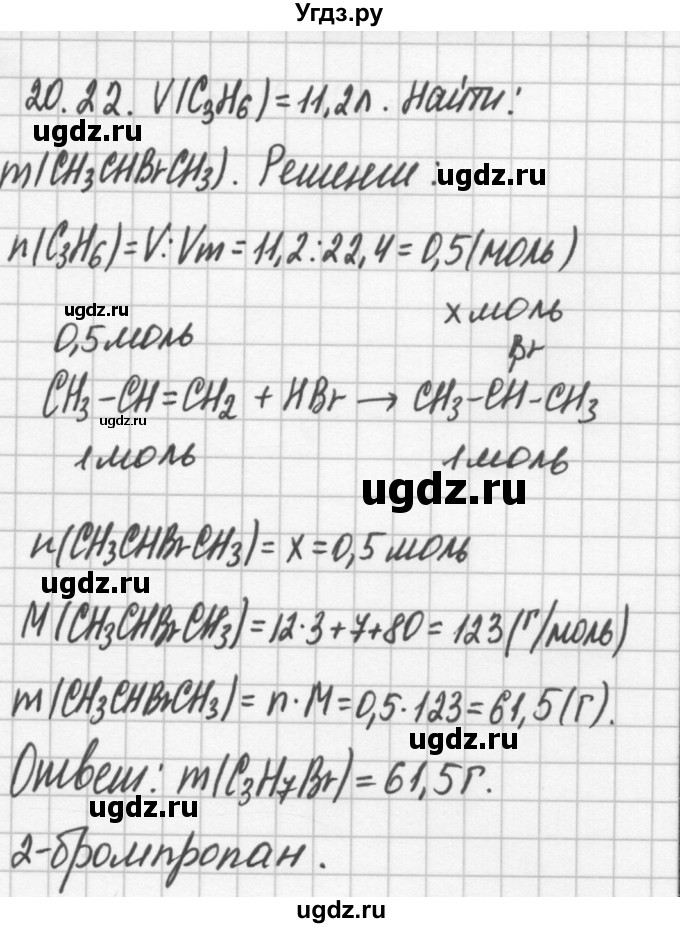 Угдз.ру
20.22. V(C₃H₆)=11,2л. Найти:
ugdz.ru
m(CH₃CHBrCH₃). Решение: ugdz.ru
n(C₃H₆)=V:Vm=11,2:22,4=0,5(моль)
ugdz.ru
x моль
0,5моль
Br
CH₃-CH=CH₂ + HBr → CH₃-CH-CH₃
ugdz.ru
1моль 1моль
ugdz.ru
n(CH₃CHBrCH₃)= x=0,5моль
ugdz.ru
M(CH₃CHBrCH₃)=12·3+7+80=123(г/моль)
m(CH₃CHBrCH₃)= n·M=0,5·123=61,5(г).
ugdz.ru
Ответ: m(C₃H₇Br)=61,5г.
ugdz.ru
2-бромпропан.
ugdz.ru